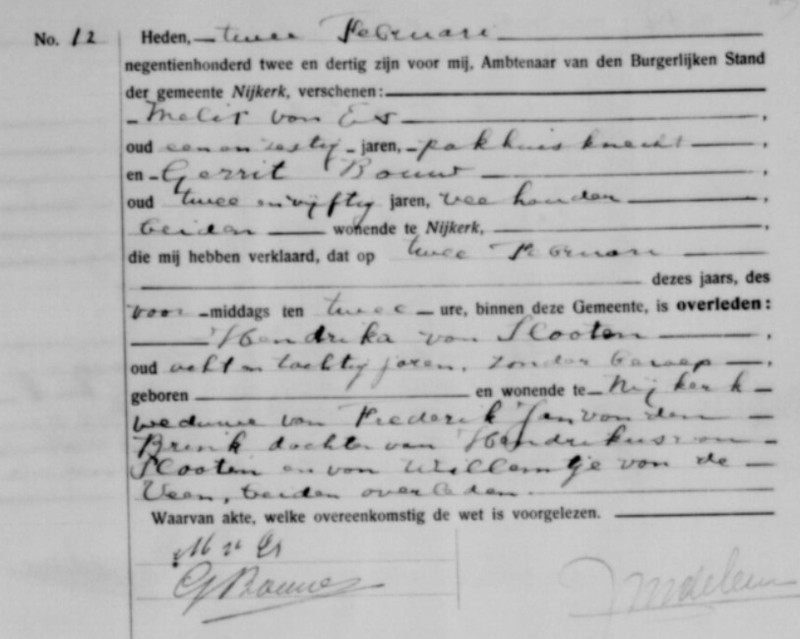 No. 12 Heden, twee Februari
negentienhonderd twee en dertig zijn voor mij, Ambtenaar van den Burgerlijken Stand
der gemeente Nijkerk, verschenen:
Melis van Es,
oud een en zestig jaren, pakhuisknecht,
en Gerrit Bouw,
oud twee en vijftig jaren, veehouder,
beiden wonende te Nijkerk,
die mij hebben verklaard, dat op twee Februari
dezes jaars, des
voor-middags ten twee ure, binnen deze Gemeente, is overleden:
Hendrika van Slooten,
oud acht en tachtig jaren, zonder beroep,
geboren en wonende te Nijkerk
weduwe van Frederik Jan van den
Brink dochter van Hendrikus van
Slooten en van Willempje van de
Veen, beiden overleden.
Waarvan akte, welke overeenkomstig de wet is voorgelezen.
M v Es
G Bouw